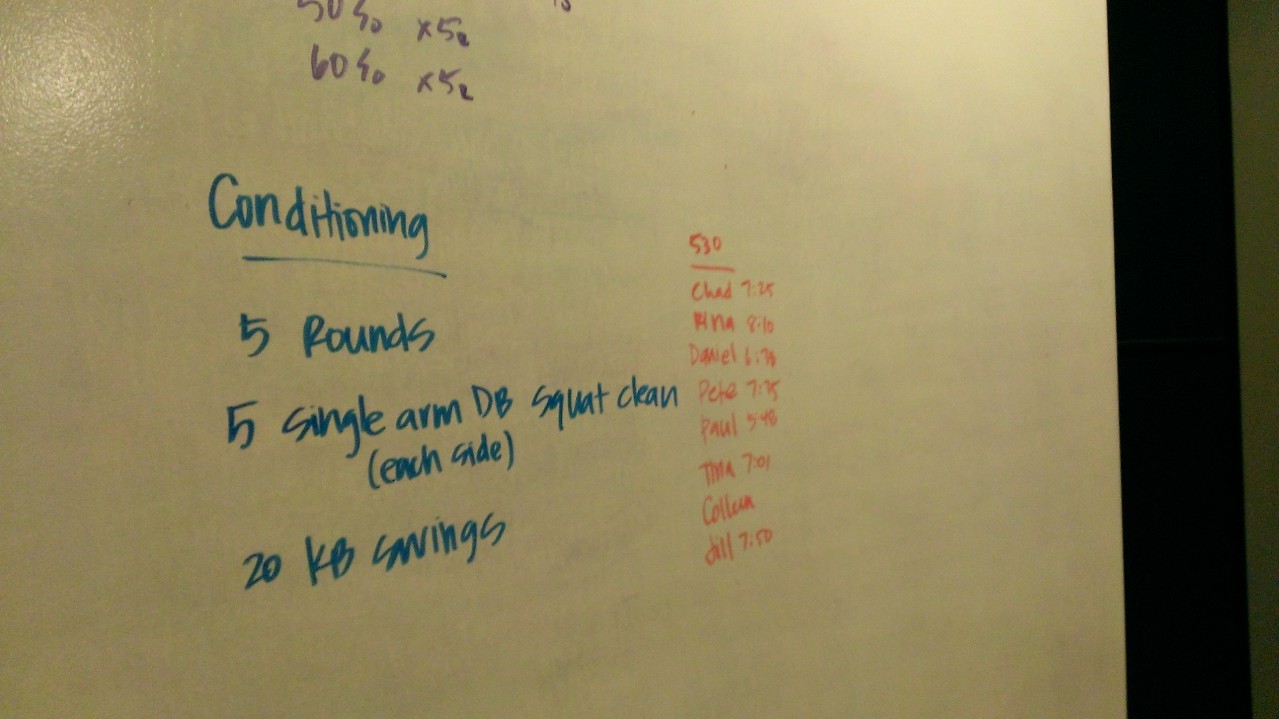 50% x5
60% x5
Conditioning
5 Rounds
5 Single arm DB squat clean
(each side)
20 KB swings
530
Chad 7:25
8:10
Daniel
Pete 7:35
Paul 5:48
Tina 7:01
Colleen
Jill 7:50